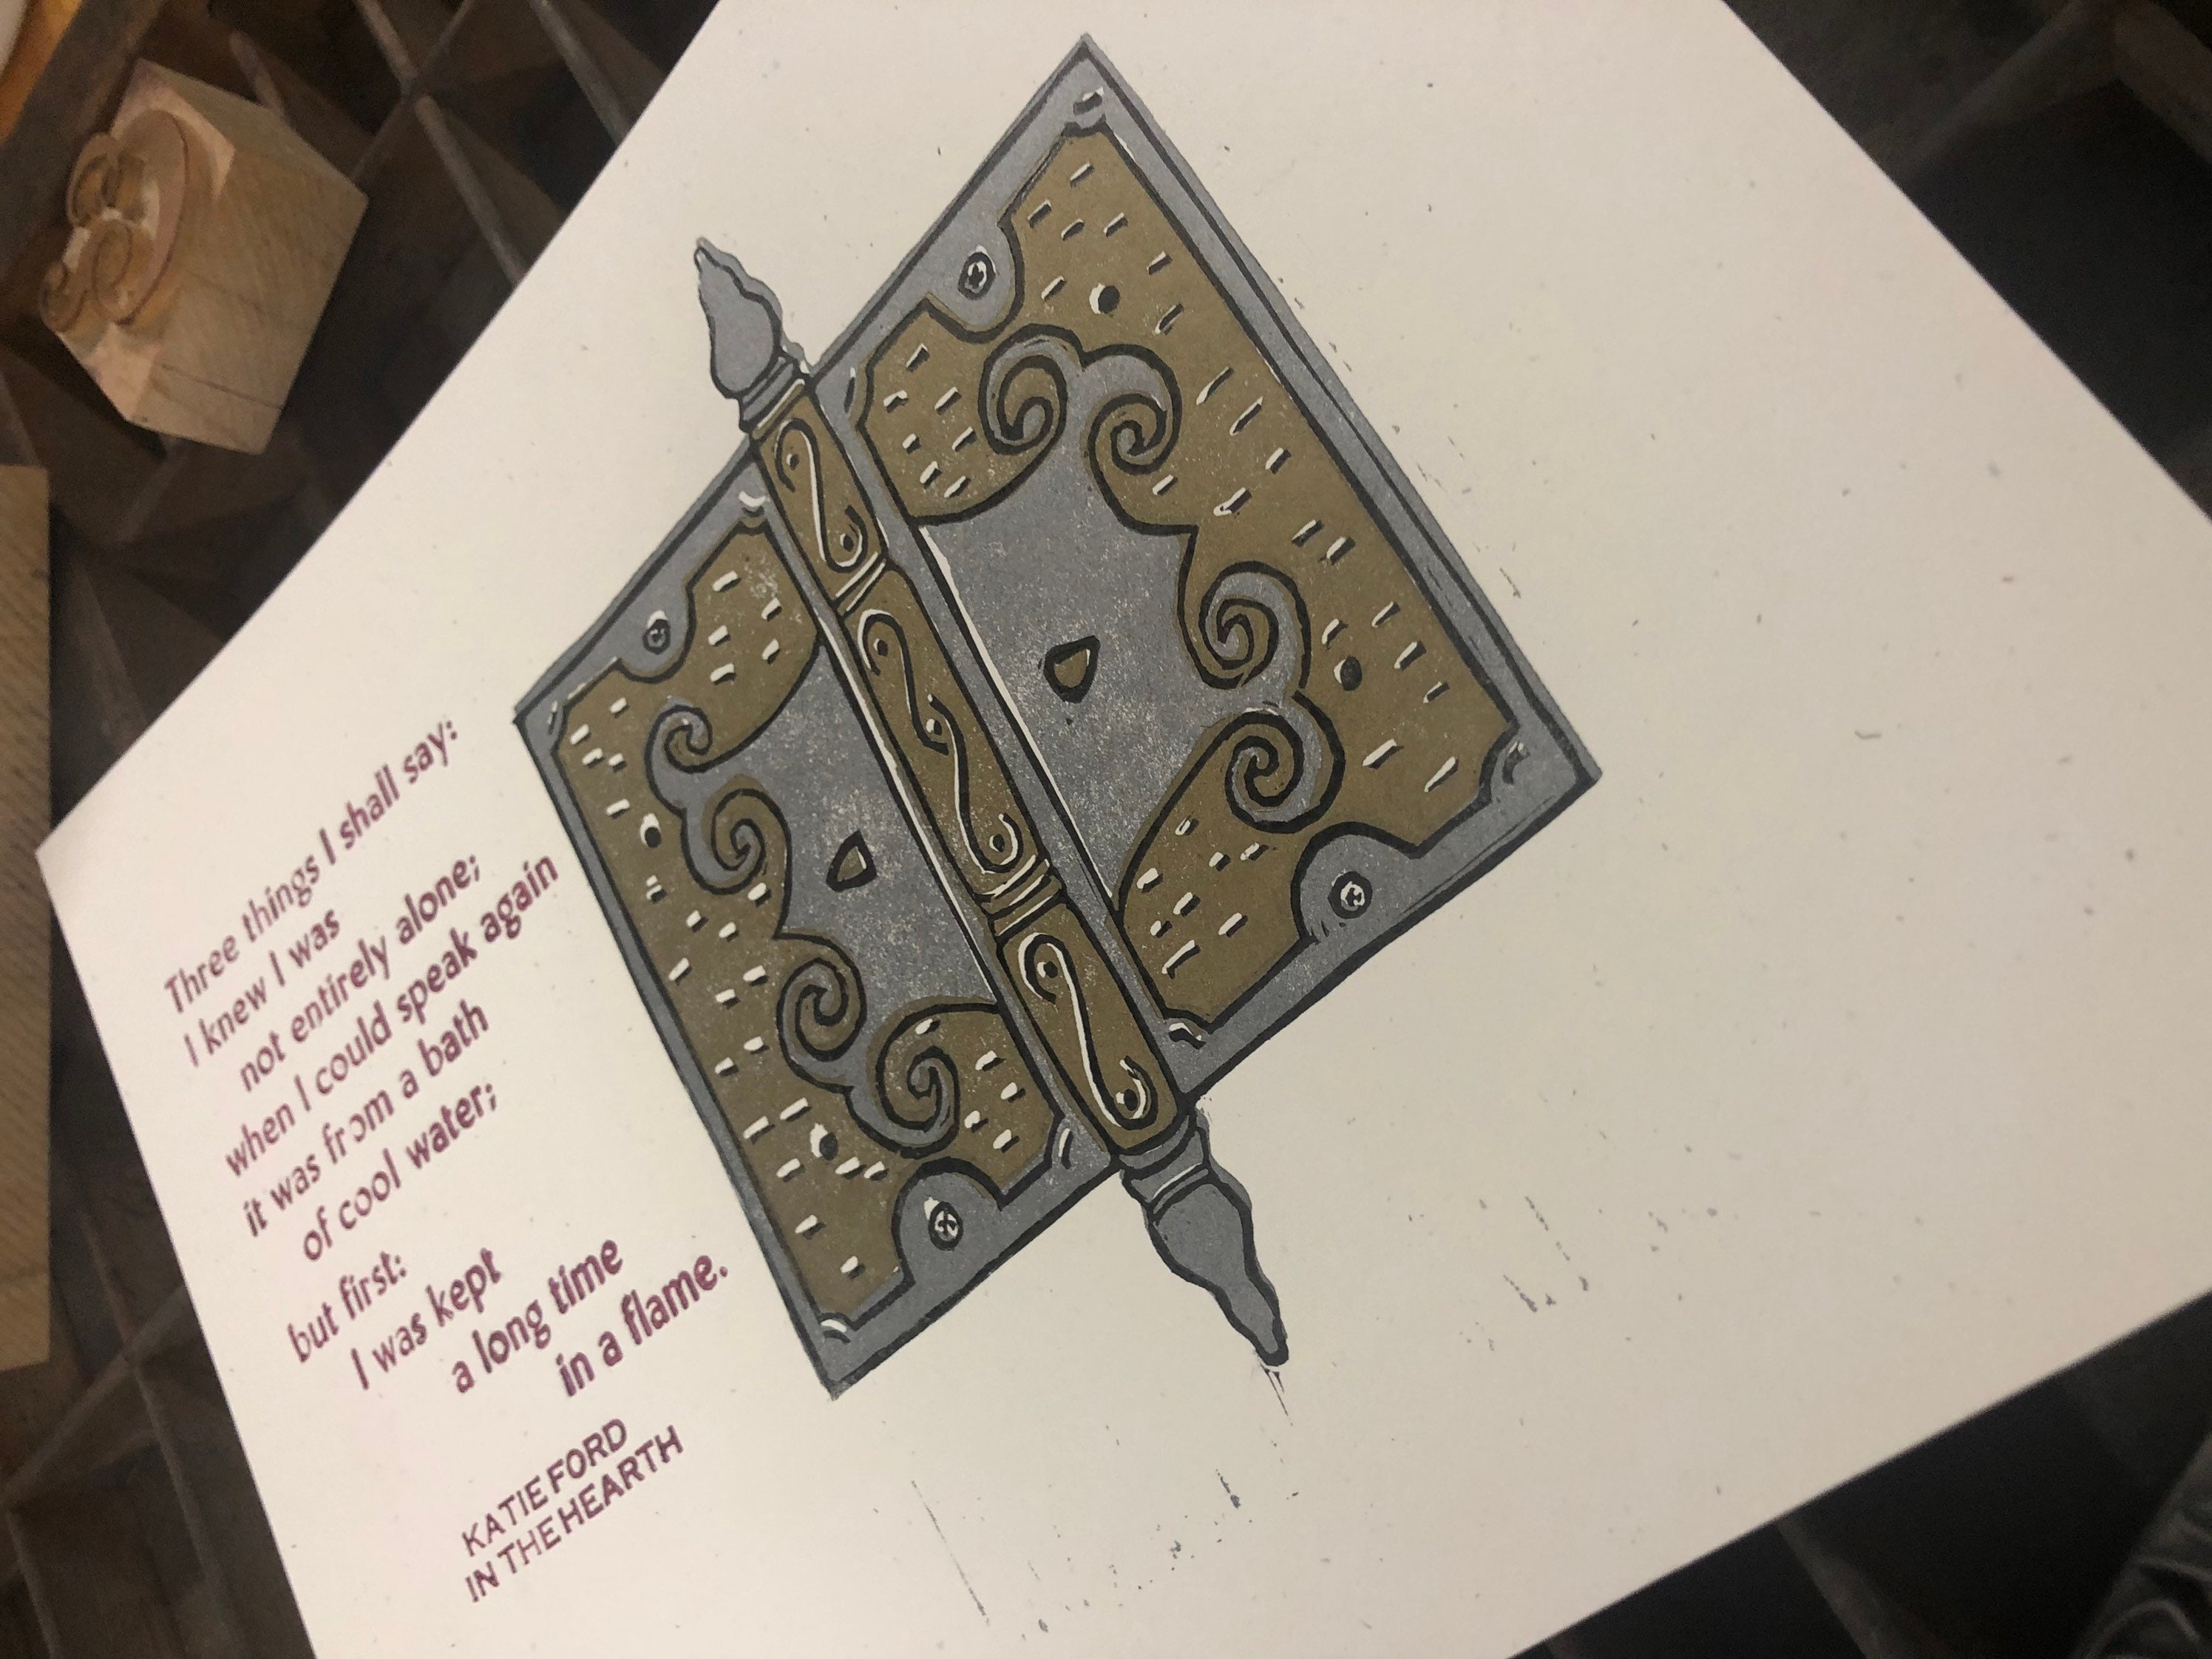 Three things I shall say:
I knew I was
not entirely alone;
when I could speak again
it was from a bath
of cool water;
but first:
I was kept
a long time
in a flame.
KATIE FORD
IN THE HEARTH